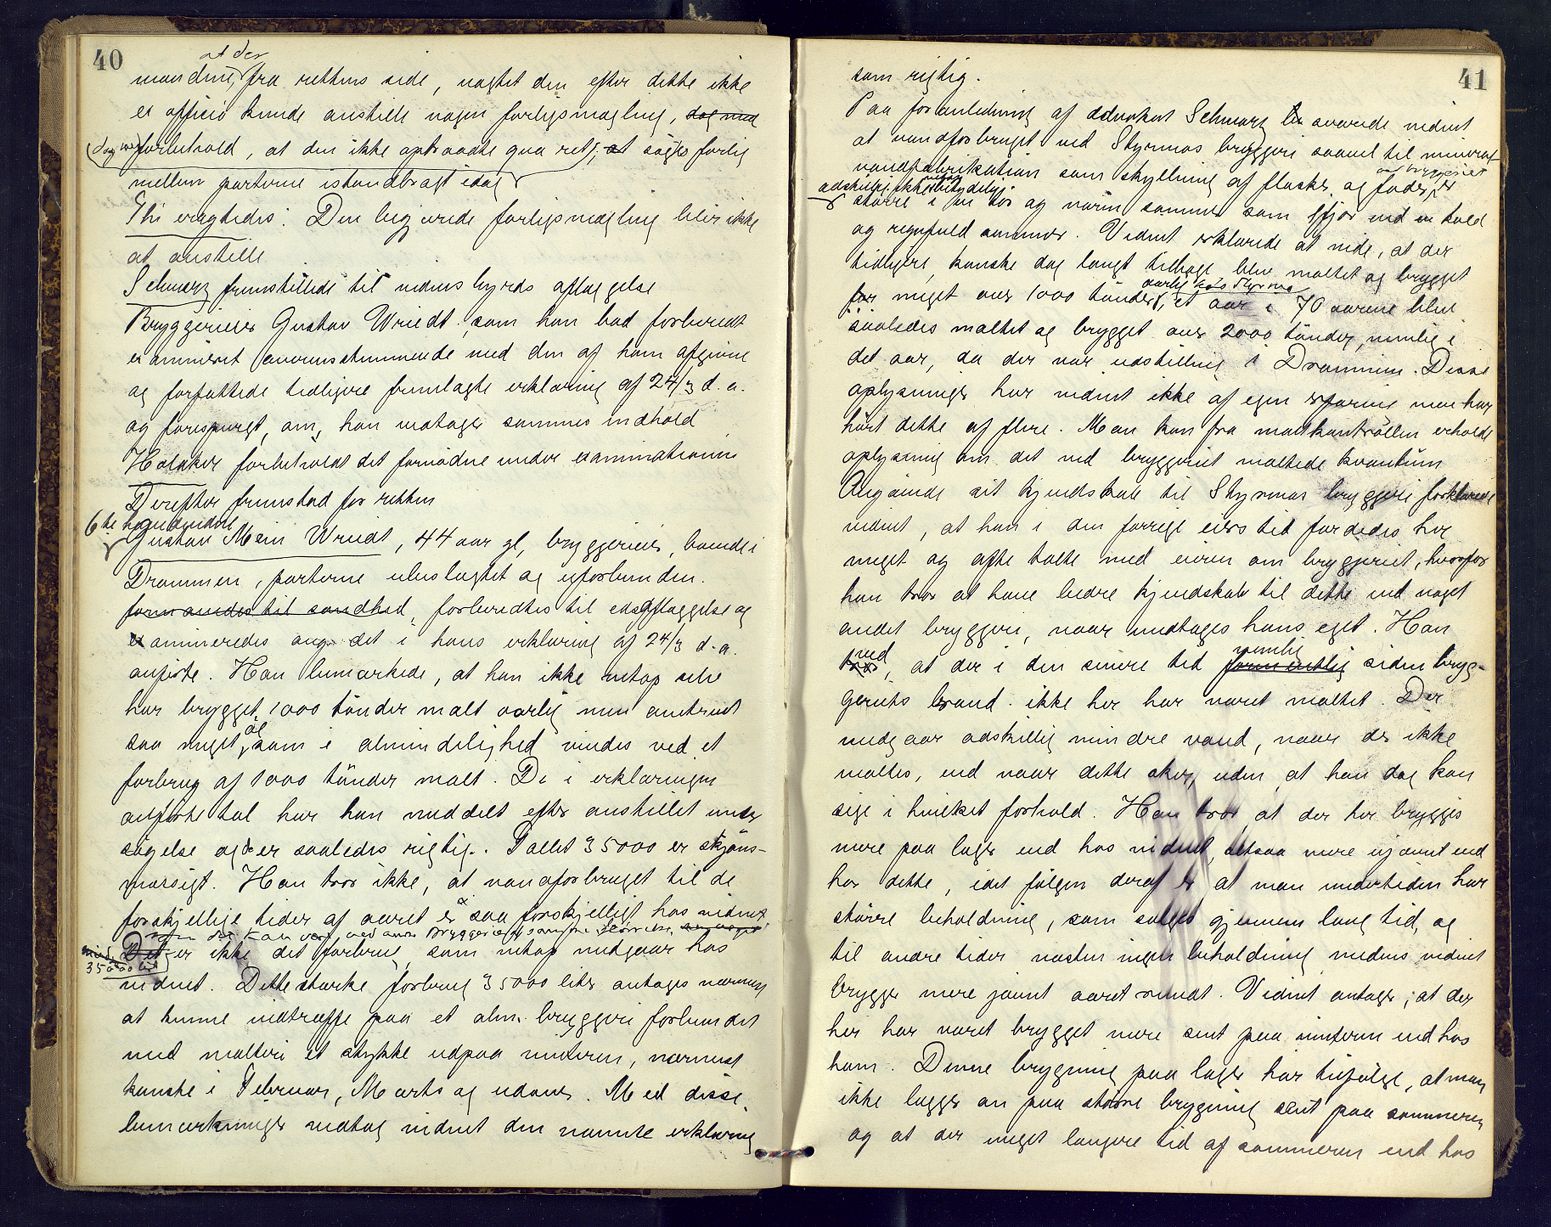 40
at der
mandine, fra rettens side, uagtet den efter dette ikke
ex officio kunde anstille nogen forligsmægling, dog med
(dog med) forbehold, at den ikke optraadte qua ret, at søges forlig
mellem parterne istandbragt idag
Thi eragtedes: Den begjærede forligsmægling blir ikke
at anstille
Schwarz fremstillede til vidnesbyrds aflæggelse
Bryggerieier Gustav Wriedt, som han bad forberedt
examineret overensstemmende med den af ham afgivne
og forfattede tidligere fremlagte erklæring af 24/3 d. a.
og forespurgt, om, han vedtager sammes indhold
Holaker forbeholdt det fornødne under examinationen
Derefter fremstod for retten
6te hovedvidne
Gustav Mein Wriedt, 44 aar gl, bryggerieier, boende i
Drammen, parterne ubeslægtet og uforbunden.
formanedes til sandhed, forberedtes til edsaflæggelse og
examineredes ang. det i hans erklæring af 24/3 d. a.
anførte. Han bemærkede, at han ikke netop selv
har brygget 1000 tønder malt aarlig men omtrent
saa meget, at som i almindelighed vindes ved et
forbrug af 1000 tønder malt. De i erklæringen
anførte tal har han meddelt efter anstillet under
søgelse og de er saaledes rigtig. Tallet 35000 er skjøns-
mæssigt. Han tror ikke, at vandforbruget til de
forskjellige tider af aaret er saa forskjelligt hos vidnet
men det kan være ved andre bryggerier af samme størrelse,
med 35000 lit.
Det er ikke det forbrug, som netop medgaar hos
vidnet. Dette stærke forbrug 35000 liter antages nærmest
at kunne indtræffe paa et alm. bryggeri forbundet
med malteri et stykke udpaa vinteren, nærmest
kanske i Februar, Marts og udover. Med disse
bemærkninger vedtog vidnet den nævnte erklæring
41
som rigtig.
Paa foranledning af advokat Schwarz svarede vidnet
at vandforbruget ved Styrmos bryggeri saavel til mineral-
vandfabrikation som skylling af flasker og fader, er
ved bryggeriet
adskillig, ikke ubetydelig
større i en tør og varm sommer som ifjor end en kold
og regnfuld sommer. Vidnet erklærede at vide, at der
tidligere, kanske dog langt tilbage, blev maltet og brygget
aarlig hos Styrmo
for meget over 1000 tønder, et aar i 70 aarene blev
saaledes maltet og brygget over 2000 tønder, nemlig i
det aar, da der var udstilling i Drammen. Disse
oplysninger har vidnet ikke af egen erfaring men har
hørt dette af flere. Man kan fra maltkontrollen erholde
oplysning om det ved bryggeriet maltede kvantum
Angaaende sit kjendskab til Styrmos bryggeri forklarede
vidnet, at han i den forrige eiers tid færdedes her
meget og ofte talte med eieren om bryggeriet, hvorfor
han tror at have bedre kjendskab til dette end noget
andet bryggeri, naar undtages hans eget. Han
ved
tror, at der i den senere tid formentlig siden bryg-
nemlig
geriets brand ikke her har været maltet. Der
medgaar adskillig mindre vand, naar der ikke
maltes, end naar dette sker, uden at han dog kan
sige i hvilket forhold. Han tror at der her brygges
mere paa lager end hos vidnet, altsaa mere ujævnt end
hos dette, idet følgen deraf er at man undertiden har
større beholdning, som sælges gjennem lang tid, og
til andre tider næsten ingen beholdning medens vidnet
brygger mere jævnt aaret rundt. Vidnet antager, at der
her har været brygget mere sent paa vinteren end hos
ham. Denne brygning paa lager har tilfølge, at man
ikke lægger an paa større brygning sent paa sommeren
og at der meget længere tid af sommeren end hos